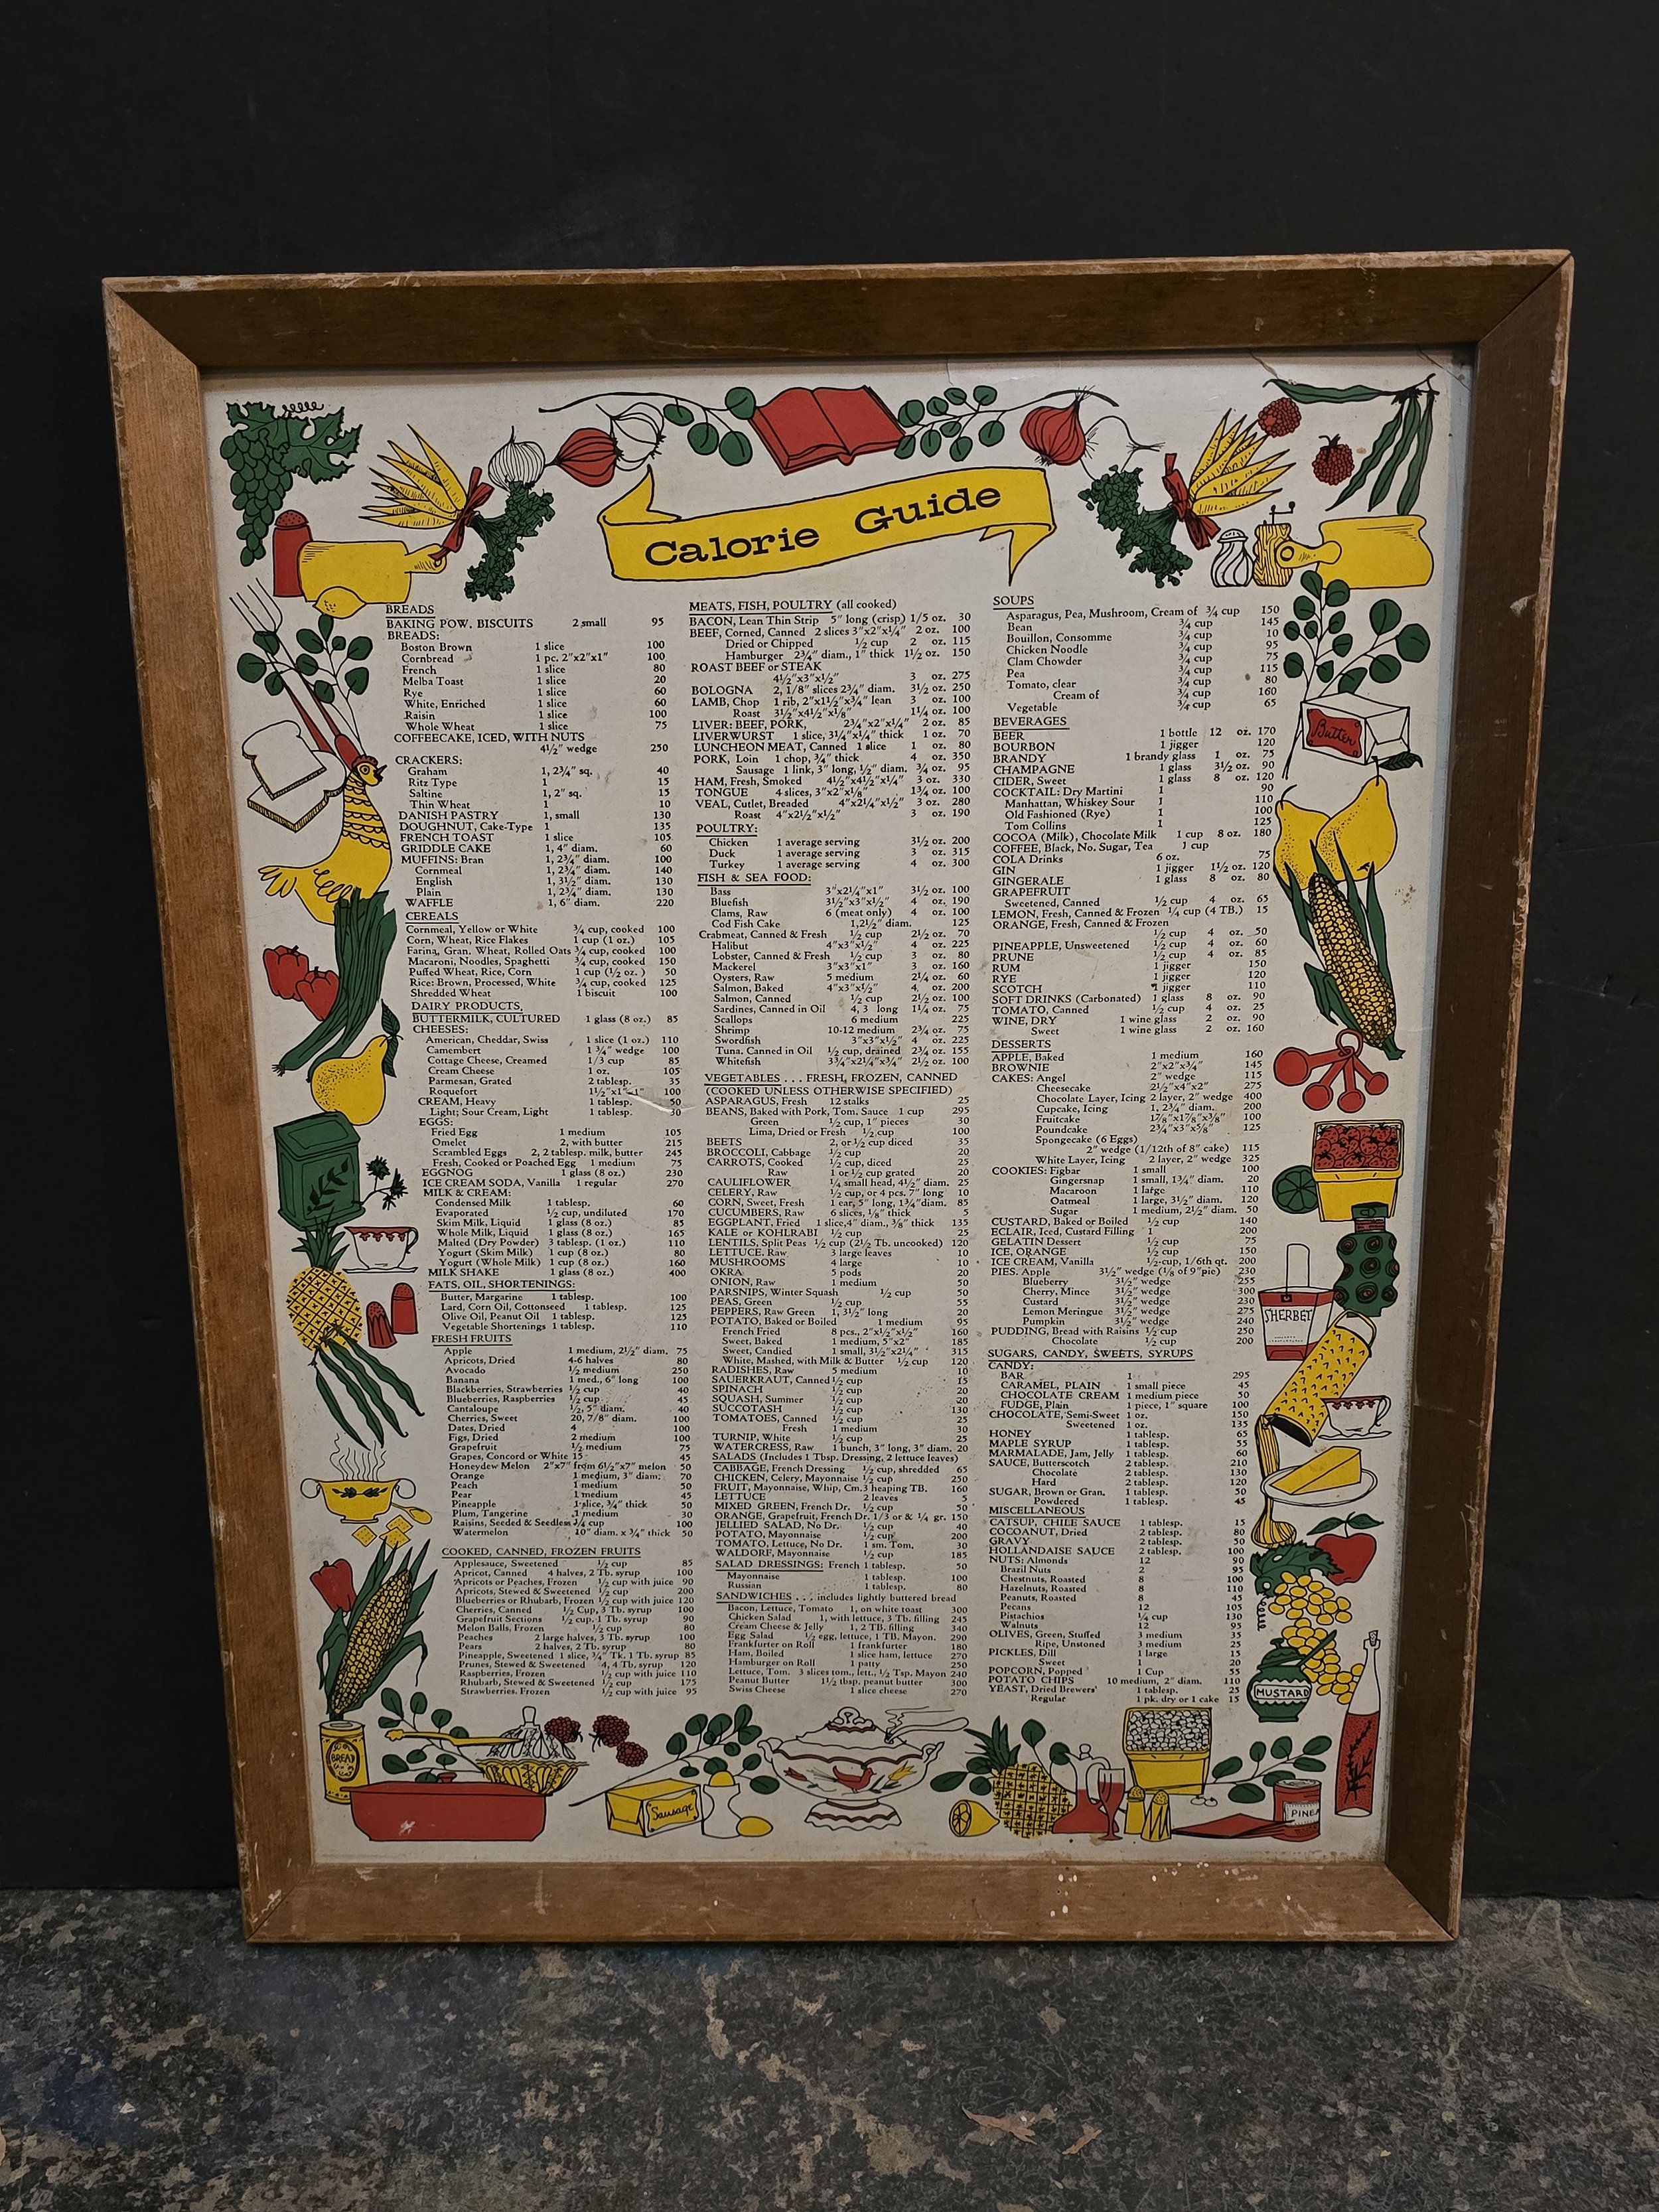 Calorie Guide
BREADS
BAKING POW. BISCUITS 2 small 95
BREADS:
Boston Brown 1 slice 100
Cornbread 1 pc. 2"x2"x1" 100
French 1 slice 80
Melba Toast 1 slice 20
Rye 1 slice 60
White, Enriched 1 slice 60
Raisin 1 slice 100
Whole Wheat 1 slice 75
COFFEECAKE, ICED, WITH NUTS
4½" wedge 250
CRACKERS:
Graham 1, 2¾" sq. 40
Ritz Type 1 15
Saltine 1, 2" sq. 15
Thin Wheat 1 10
DANISH PASTRY 1, small 130
DOUGHNUT, Cake-Type 1 135
FRENCH TOAST 1 slice 105
GRIDDLE CAKE 1, 4" diam. 60
MUFFINS: Bran 1, 2¾" diam. 100
Cornmeal 1, 2¾" diam. 140
English 1, 3½" diam. 130
Plain 1, 2¾" diam. 130
WAFFLE 1, 6" diam. 220
CEREALS
Cornmeal, Yellow or White ¾ cup, cooked 100
Corn, Wheat, Rice Flakes 1 cup (1 oz.) 105
Farina, Gran. Wheat, Rolled Oats ¾ cup, cooked 100
Macaroni, Noodles, Spaghetti ¾ cup, cooked 150
Puffed Wheat, Rice, Corn 1 cup (½ oz.) 50
Rice: Brown, Processed, White ¾ cup, cooked 125
Shredded Wheat 1 biscuit 100
DAIRY PRODUCTS,
BUTTERMILK, CULTURED 1 glass (8 oz.) 85
CHEESES:
American, Cheddar, Swiss 1 slice (1 oz.) 110
Camembert 1 ¾" wedge 100
Cottage Cheese, Creamed 1/3 cup 85
Cream Cheese 1 oz. 105
Parmesan, Grated 2 tablesp. 35
Roquefort 1½"x1"x1" 100
CREAM, Heavy 1 tablesp. 50
Light; Sour Cream, Light 1 tablesp. 30
EGGS:
Fried Egg 1 medium 105
Omelet 2, with butter 215
Scrambled Eggs 2, 2 tablesp. milk, butter 245
Fresh, Cooked or Poached Egg 1 medium 75
EGGNOG 1 glass (8 oz.) 230
ICE CREAM SODA, Vanilla 1 regular 270
MILK & CREAM:
Condensed Milk 1 tablesp. 60
Evaporated ½ cup, undiluted 170
Skim Milk, Liquid 1 glass (8 oz.) 85
Whole Milk, Liquid 1 glass (8 oz.) 165
Malted (Dry Powder) 3 tablesp. (1 oz.) 110
Yogurt (Skim Milk) 1 cup (8 oz.) 80
Yogurt (Whole Milk) 1 cup (8 oz.) 160
MILK SHAKE 1 glass (8 oz.) 400
FATS, OIL, SHORTENINGS:
Butter, Margarine 1 tablesp. 100
Lard, Corn Oil, Cottonseed 1 tablesp. 125
Olive Oil, Peanut Oil 1 tablesp. 125
Vegetable Shortenings 1 tablesp. 110
FRESH FRUITS
Apple 1 medium, 2½" diam. 75
Apricots, Dried 4-6 halves 80
Avocado ½ medium 250
Banana 1 med., 6" long 100
Blackberries, Strawberries ½ cup 40
Blueberries, Raspberries ½ cup 45
Cantaloupe ½, 5" diam. 40
Cherries, Sweet 20, 7/8" diam. 100
Dates, Dried 4 100
Figs, Dried 2 medium 100
Grapefruit ½ medium 75
Grapes, Concord or White 15 45
Honeydew Melon 2"x7" from 6½"x7" melon 50
Orange 1 medium, 3" diam. 70
Peach 1 medium 50
Pear 1 medium 45
Pineapple 1 slice, ¾" thick 50
Plum, Tangerine 1 medium 30
Raisins, Seeded & Seedless ¼ cup 100
Watermelon 10" diam. x ¾" thick 50
COOKED, CANNED, FROZEN FRUITS
Applesauce, Sweetened ½ cup 85
Apricot, Canned 4 halves, 2 Tb. syrup 100
Apricots or Peaches, Frozen ½ cup with juice 90
Apricots, Stewed & Sweetened ½ cup 200
Blueberries or Rhubarb, Frozen ½ cup with juice 120
Cherries, Canned ½ Cup, 3 Tb. syrup 100
Grapefruit Sections ½ cup, 1 Tb. syrup 90
Melon Balls, Frozen ½ cup 80
Peaches 2 large halves, 3 Tb. syrup 100
Pears 2 halves, 2 Tb. syrup 80
Pineapple, Sweetened 1 slice, ¾" Tk. 1 Tb. syrup 85
Prunes, Stewed & Sweetened 4, 4 Tb. syrup 120
Raspberries, Frozen ½ cup with juice 110
Rhubarb, Stewed & Sweetened ½ cup 175
Strawberries. Frozen ½ cup with juice 95
MEATS, FISH, POULTRY (all cooked)
BACON, Lean Thin Strip 5" long (crisp) 1/5 oz. 30
BEEF, Corned, Canned 2 slices 3"x2"x¼" 2 oz. 100
Dried or Chipped ½ cup 2 oz. 115
Hamburger 2¾" diam., 1" thick 1½ oz. 150
ROAST BEEF or STEAK
4½"x3"x½" 3 oz. 275
BOLOGNA 2, 1/8" slices 2¾" diam. 3½ oz. 250
LAMB, Chop 1 rib, 2"x1½"x¾" lean 3 oz. 100
Roast 3½"x4½"x⅛" 1¼ oz. 100
LIVER: BEEF, PORK, 2¾"x2"x¼" 2 oz. 85
LIVERWURST 1 slice, 3¼"x¼" thick 1 oz. 70
LUNCHEON MEAT, Canned 1 slice 1 oz. 80
PORK, Loin 1 chop, ¾" thick 4 oz. 350
Sausage 1 link, 3" long, ½" diam. ¾ oz. 95
HAM, Fresh, Smoked 4½"x4½"x¼" 3 oz. 330
TONGUE 4 slices, 3"x2"x⅛" 1¾ oz. 100
VEAL, Cutlet, Breaded 4"x2¼"x½" 3 oz. 280
Roast 4"x2½"x½" 3 oz. 190
POULTRY:
Chicken 1 average serving 3½ oz. 200
Duck 1 average serving 3 oz. 315
Turkey 1 average serving 4 oz. 300
FISH & SEA FOOD:
Bass 3"x2¼"x1" 3½ oz. 100
Bluefish 3½"x3"x½" 4 oz. 190
Clams, Raw 6 (meat only) 4 oz. 100
Cod Fish Cake 1,2½" diam. 125
Crabmeat, Canned & Fresh ½ cup 2½ oz. 70
Halibut 4"x3"x½" 4 oz. 225
Lobster, Canned & Fresh ½ cup 3 oz. 80
Mackerel 3"x3"x1" 3 oz. 160
Oysters, Raw 5 medium 2¼ oz. 60
Salmon, Baked 4"x3"x½" 4 oz. 200
Salmon, Canned ½ cup 2½ oz. 100
Sardines, Canned in Oil 4, 3 long 1¼ oz. 75
Scallops 6 medium 225
Shrimp 10-12 medium 2¾ oz. 75
Swordfish 3"x3"x½" 4 oz. 225
Tuna, Canned in Oil ½ cup, drained 2¾ oz. 155
Whitefish 3¾"x2¼"x¾" 2½ oz. 100
VEGETABLES . . . FRESH, FROZEN, CANNED
(COOKED UNLESS OTHERWISE SPECIFIED)
ASPARAGUS, Fresh 12 stalks 25
BEANS, Baked with Pork, Tom. Sauce 1 cup 295
Green ½ cup, 1" pieces 30
Lima, Dried or Fresh ½ cup 100
BEETS 2, or ½ cup diced 35
BROCCOLI, Cabbage ½ cup 20
CARROTS, Cooked ½ cup, diced 25
Raw 1 or ½ cup grated 20
CAULIFLOWER ¼ small head, 4½" diam. 25
CELERY, Raw ½ cup, or 4 pcs. 7" long 10
CORN, Sweet, Fresh 1 ear, 5" long, 1¾"diam. 85
CUCUMBERS, Raw 6 slices, ⅛" thick 5
EGGPLANT, Fried 1 slice,4" diam., ⅜" thick 135
KALE or KOHLRABI ½ cup 25
LENTILS, Split Peas ½ cup (2½ Tb. uncooked) 120
LETTUCE. Raw 3 large leaves 10
MUSHROOMS 4 large 10
OKRA 5 pods 20
ONION, Raw 1 medium 50
PARSNIPS, Winter Squash ½ cup 50
PEAS, Green ½ cup 55
PEPPERS, Raw Green 1, 3½" long 20
POTATO, Baked or Boiled 1 medium 95
French Fried 8 pcs., 2"x½"x½" 160
Sweet, Baked 1 medium, 5"x2" 185
Sweet, Candied 1 small, 3½"x2¼" 315
White, Mashed, with Milk & Butter ½ cup 120
RADISHES, Raw 5 medium 10
SAUERKRAUT, Canned ½ cup 15
SPINACH ½ cup 20
SQUASH, Summer ½ cup 20
SUCCOTASH ½ cup 130
TOMATOES, Canned ½ cup 25
Fresh 1 medium 30
TURNIP, White ½ cup 25
WATERCRESS, Raw 1 bunch, 3" long, 3" diam. 20
SALADS (Includes 1 Tbsp. Dressing, 2 lettuce leaves)
CABBAGE, French Dressing ½ cup, shredded 65
CHICKEN, Celery, Mayonnaise ½ cup 250
FRUIT, Mayonnaise, Whip, Cm. 3 heaping TB. 160
LETTUCE 2 leaves 5
MIXED GREEN, French Dr. ½ cup 50
ORANGE, Grapefruit, French Dr. 1/3 or & ¼ gr. 150
JELLIED SALAD, No Dr. ½ cup 40
POTATO, Mayonnaise ½ cup 200
TOMATO, Lettuce, No Dr. 1 sm. Tom. 30
WALDORF, Mayonnaise ½ cup 185
SALAD DRESSINGS: French 1 tablesp. 50
Mayonnaise 1 tablesp. 100
Russian 1 tablesp. 80
SANDWICHES . . . includes lightly buttered bread
Bacon, Lettuce, Tomato 1, on white toast 300
Chicken Salad 1, with lettuce, 3 Tb. filling 245
Cream Cheese & Jelly 1, 2 TB. filling 340
Egg Salad ½ egg, lettuce, 1 TB. Mayon. 290
Frankfurter on Roll 1 frankfurter 180
Ham, Boiled 1 slice ham, lettuce 270
Hamburger on Roll 1 patty 250
Lettuce, Tom. 3 slices tom., lett., ½ Tsp. Mayon 240
Peanut Butter 1½ tbsp. peanut butter 300
Swiss Cheese 1 slice cheese 270
SOUPS
Asparagus, Pea, Mushroom, Cream of ¾ cup 150
Bean ¾ cup 145
Bouillon, Consomme ¾ cup 10
Chicken Noodle ¾ cup 95
Clam Chowder ¾ cup 75
Pea ¾ cup 115
Tomato, clear ¾ cup 80
Cream of ¾ cup 160
Vegetable ¾ cup 65
BEVERAGES
BEER 1 bottle 12 oz. 170
BOURBON 1 jigger 120
BRANDY 1 brandy glass 1 oz. 75
CHAMPAGNE 1 glass 3½ oz. 90
CIDER, Sweet 1 glass 8 oz. 120
COCKTAIL: Dry Martini 1 90
Manhattan, Whiskey Sour 1 110
Old Fashioned (Rye) 1 100
Tom Collins 1 125
COCOA (Milk), Chocolate Milk 1 cup 8 oz. 180
COFFEE, Black, No. Sugar, Tea 1 cup
COLA Drinks 6 oz. 75
GIN 1 jigger 1½ oz. 120
GINGERALE 1 glass 8 oz. 80
GRAPEFRUIT
Sweetened, Canned ½ cup 4 oz. 65
LEMON, Fresh, Canned & Frozen ¼ cup (4 TB.) 15
ORANGE, Fresh, Canned & Frozen
½ cup 4 oz. 50
PINEAPPLE, Unsweetened ½ cup 4 oz. 60
PRUNE ½ cup 4 oz. 85
RUM 1 jigger 150
RYE 1 jigger 120
SCOTCH 1 jigger 110
SOFT DRINKS (Carbonated) 1 glass 8 oz. 90
TOMATO, Canned ½ cup 4 oz. 25
WINE, DRY 1 wine glass 2 oz. 90
Sweet 1 wine glass 2 oz. 160
DESSERTS
APPLE, Baked 1 medium 160
BROWNIE 2"x2"x¾" 145
CAKES: Angel 2" wedge 115
Cheesecake 2½"x4"x2" 275
Chocolate Layer, Icing 2 layer, 2" wedge 400
Cupcake, Icing 1, 2¾" diam. 200
Fruitcake 1⅞"x1⅞"x⅜" 100
Poundcake 2¾"x3"x⅝" 125
Spongecake (6 Eggs)
2" wedge (1/12th of 8" cake) 115
White Layer, Icing 2 layer, 2" wedge 325
COOKIES: Figbar 1 small 100
Gingersnap 1 small, 1¾" diam. 20
Macaroon 1 large 110
Oatmeal 1 large, 3½" diam. 120
Sugar 1 medium, 2½" diam. 50
CUSTARD, Baked or Boiled ½ cup 140
ECLAIR, Iced, Custard Filling 1 200
GELATIN Dessert ½ cup 75
ICE, ORANGE ½ cup 150
ICE CREAM, Vanilla ½-cup, 1/6th qt. 200
PIES. Apple 3½" wedge (⅛ of 9"pie) 230
Blueberry 3½" wedge 255
Cherry, Mince 3½" wedge 300
Custard 3½" wedge 230
Lemon Meringue 3½" wedge 275
Pumpkin 3½" wedge 240
PUDDING, Bread with Raisins ½ cup 250
Chocolate ½ cup 200
SUGARS, CANDY, SWEETS, SYRUPS
CANDY:
BAR 1 295
CARAMEL, PLAIN 1 small piece 45
CHOCOLATE CREAM 1 medium piece 50
FUDGE, Plain 1 piece, 1" square 100
CHOCOLATE, Semi-Sweet 1 oz. 150
Sweetened 1 oz. 135
HONEY 1 tablesp. 65
MAPLE SYRUP 1 tablesp. 55
MARMALADE, Jam, Jelly 1 tablesp. 60
SAUCE, Butterscotch 2 tablesp. 210
Chocolate 2 tablesp. 130
Hard 2 tablesp. 120
SUGAR, Brown or Gran. 1 tablesp. 50
Powdered 1 tablesp. 45
MISCELLANEOUS
CATSUP, CHILE SAUCE 1 tablesp. 15
COCOANUT, Dried 2 tablesp. 80
GRAVY 2 tablesp. 50
HOLLANDAISE SAUCE 2 tablesp. 100
NUTS: Almonds 12 90
Brazil Nuts 2 95
Chestnuts, Roasted 8 100
Hazelnuts, Roasted 8 110
Peanuts, Roasted 8 45
Pecans 12 105
Pistachios ¼ cup 130
Walnuts 12 95
OLIVES, Green, Stuffed 3 medium 35
Ripe, Unstoned 3 medium 25
PICKLES, Dill 1 large 15
Sweet 1 20
POPCORN, Popped 1 Cup 55
POTATO CHIPS 10 medium, 2" diam. 110
YEAST, Dried Brewers' 1 tablesp. 25
Regular 1 pk. dry or 1 cake 15
Butter
SHERBET
MUSTARD
BREAD
Sausage
PINEA